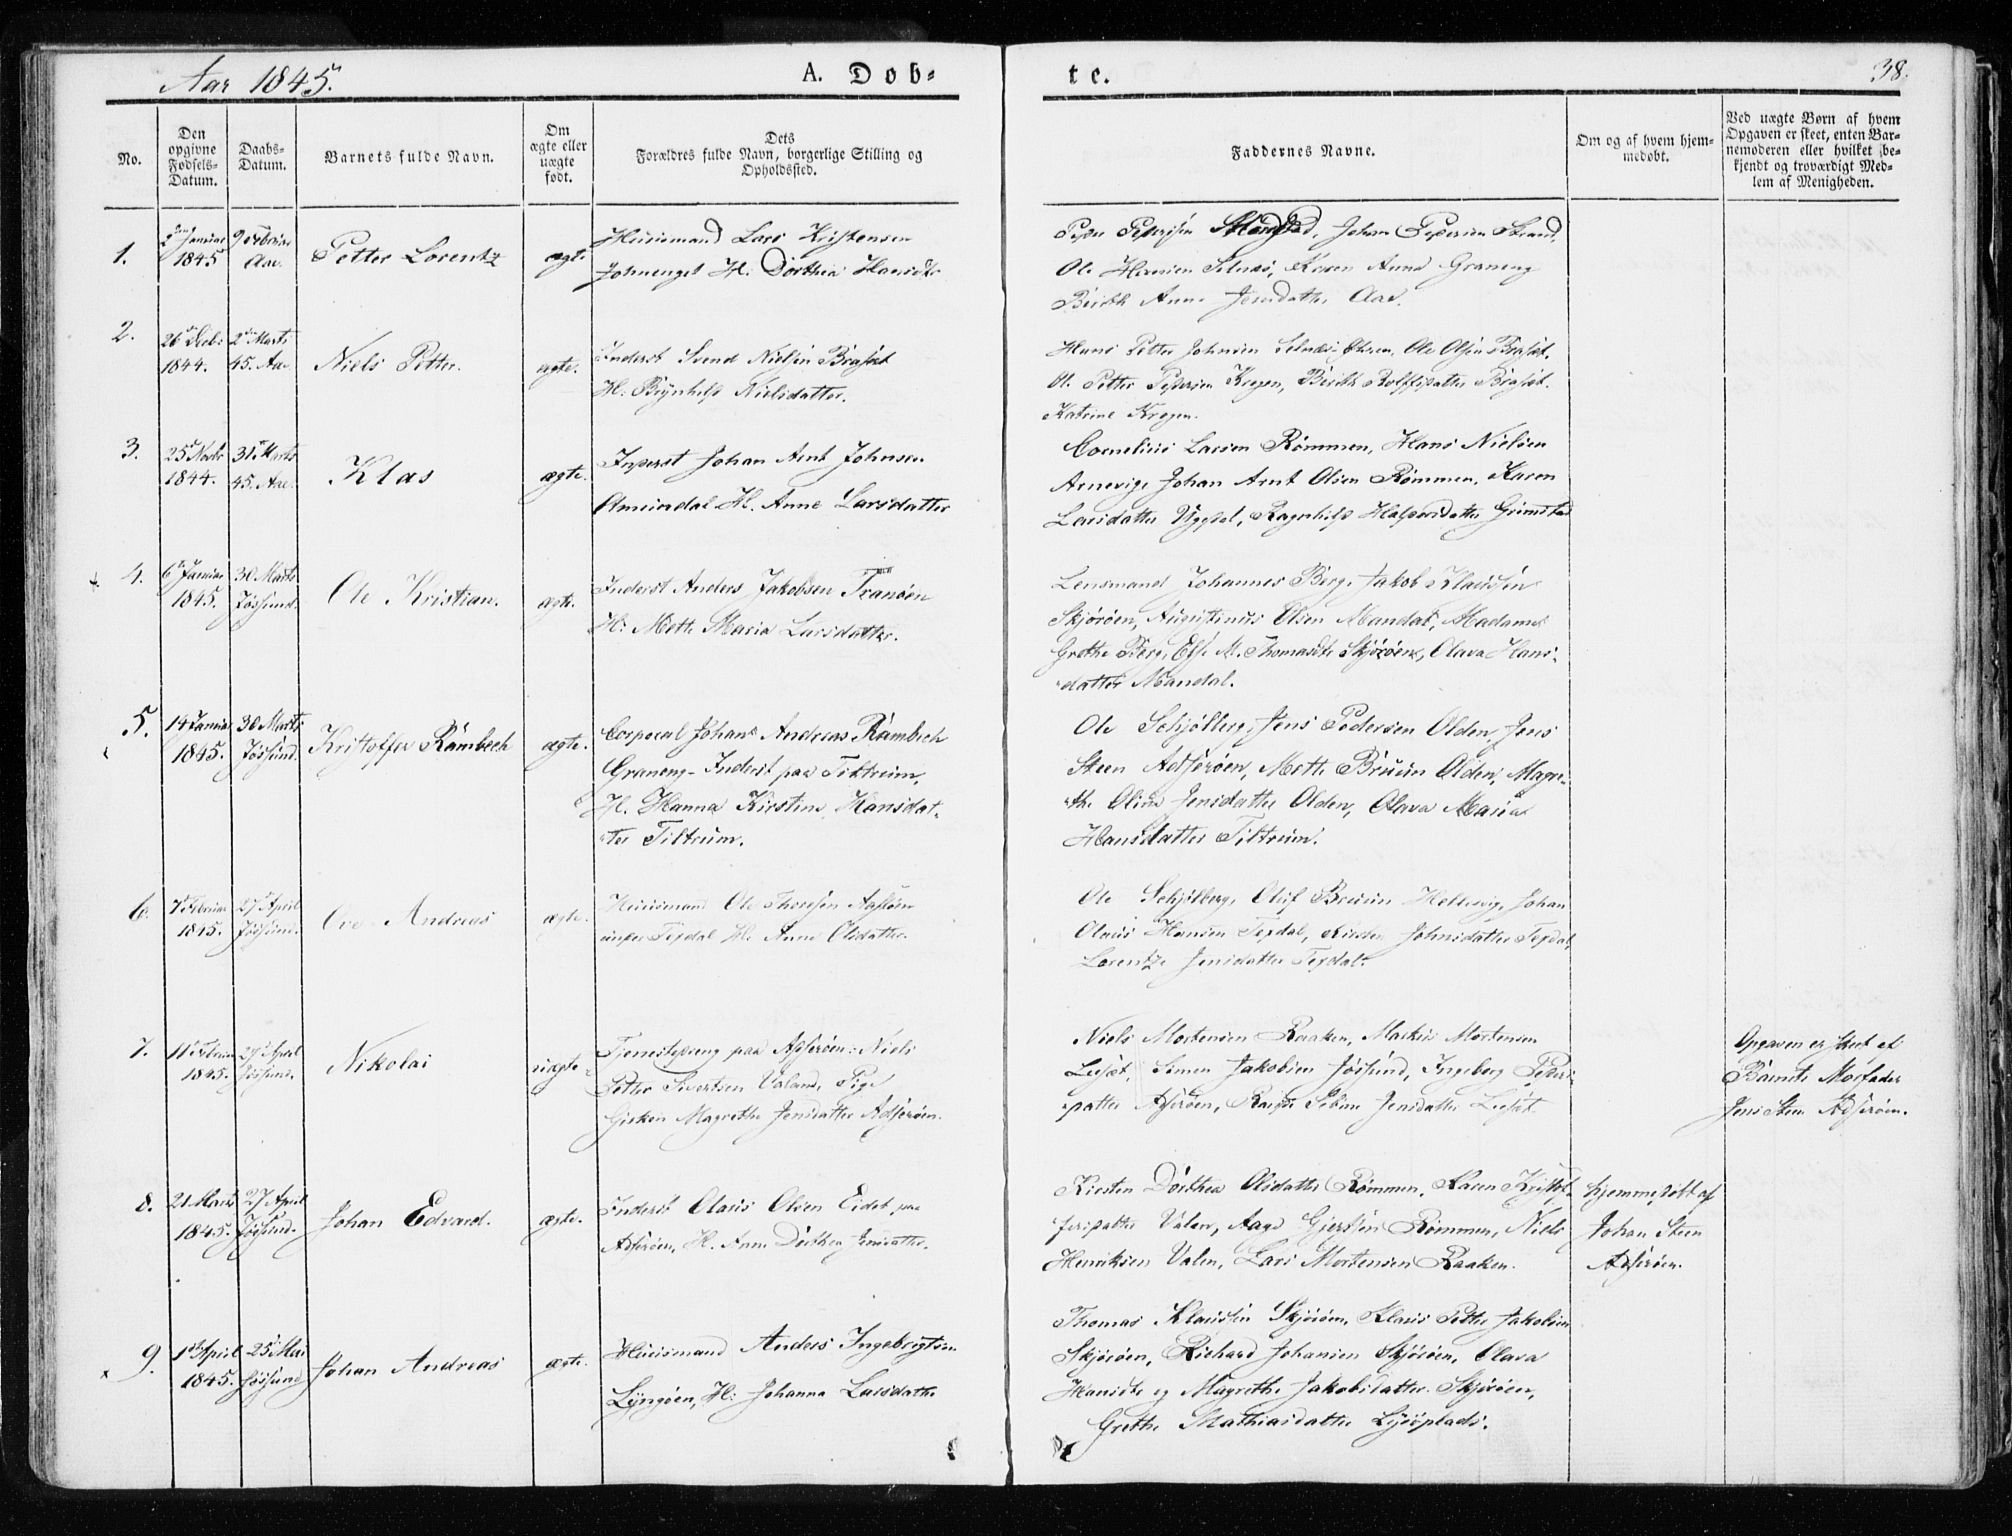 Aar 1845.
A. Dob-
te.
38.
No.
Den
opgivne
Fødsels-
Datum.
Daabs-
Datum.
Barnets fulde Navn.
Om
ægte eller
uægte
født.
Dets
Forældres fulde Navn, borgerlige Stilling og
Opholdssted.
Faddernes Navne.
Om og af hvem hjem-
medøbt.
Ved uægte Børn af hvem
Opgaven er skeet, enten Bar-
nemoderen eller hvilket be-
kjendt og troværdigt Med-
lem af Menigheden.
1.
Januar
1845
9 Februar
Aae.
Petter Lorentz
ægte
Huusmand Lars Kristensen
H: Dorthea Hansdtr
Peder Pedersen Johan Pedersen Strand,
Ole Hansen Selnæs, Karen Anna Graneng
Berith Anne Jensdatter Aae.
2.
26 Decb:
1844.
2 Marts
45. Aae.
Niels Petter.
ægte.
Inderst Svend Nielsen Brasæt
H: Brynhild Nielsdatter.
Hans Petter Johnsen Ole Olsen Brasæt.
Petter Pedersen Kregen, Berith Rolfsdatter Brasæt.
Katrine Kregen.
3.
25 Novbr
1844.
31 Marts
45. Aae.
Klas
ægte.
Inderst Johan Arnt Johnsen
H. Anne Larsdatter
Cornelius Larsen Rømmen, Hans Nielsen
Arnevig, Johan Arnt Olsen Rømmen, Karen
Larsdatter Ragnhild Halvorsdatter Grimstad
4.
6 Januar
1845.
30 Marts
Jøssund.
Ole Kristian.
ægte.
Inderst Anders Jakobsen Tranøen
H: Mette Maria Larsdatter.
Lensmand Johannes Berg, Jakob Klausen
Skjørøen, Augustinus Olsen Mandal, Madame
Grethe Berg, Else M. Thomasdtr Skjørøen, Olava Hans-
datter Mandal.
5.
14 Januar
1845.
30 Marts
Jøssund.
Kristoffer Rámbech
ægte.
Corporal Johan Andreas Rámbech
Graneng - Inderst paa Tiltrum,
H. Hanna Kirstine Hansdat-
ter Tiltrum.
Ole Schjølberg, Jens Pedersen Olden, Jens
Steen Adserøen, Mette Bruun Olden, Magre-
the Oline Jensdatter Olden, Olava Maria
Hansdatter Tiltrum.
6.
7 Februar
1845.
27 April
Jøssund.
Ove Andreas
ægte.
Huusmand Ole Thoresen
under Texdal H. Anne Olsdatter.
Ole Schjølberg, Oluf Bruun Hellesvig, Johan
Olaus Hansen Texdal, Kirsten Johnsdatter Texdal,
Lorentze Jensdatter Texdal.
7.
11 Februar
1845.
27 April
Jøssund.
Nikolai
uægte
Tjenestedreng paa Adserøen: Niels
Petter Sivertsen Valen, Pige
Gisken Magrethe Jensdatter Adserøen.
Niels Mortensen Raaken, Markus Mortensen
Simen Jakobsen Jøssund, Ingeborg Peders-
datter Adserøen, Jensdatter
Opgaven er skeet af
Barnets Morfader
Jens Steen Adserøen.
8.
21 Marts
1845.
27 April
Jøssund.
Johan Edvard.
ægte.
Inderst Olaus Olsen Eidet, paa
Adserøen, H. Anne Dorthea Jensdatter.
Kirsten Dorthea Olsdatter Rømmen, Karen Kristof-
fersdatter Valen, Aage Gjertsen Rømmen, Niels
Henriksen Valen, Lars Mortensen Raaken.
hjemmedøbt af
Johan Steen
Adserøen.
9.
1 April
1845.
25 Mai
Jøssund
Johan Andreas
ægte.
Huusmand Anders Ingebrigtsen
Lyngøen, H: Johanna Larsdatter
Thomas Klausen Skjørøen, Klaus Petter Jakobsen
Skjørøen, Richard Johansen Skjørøen, Olava
Hansdtr og Magrethe Jakobsdatter Skjørøen,
Grethe Mathiasdatter Lysøplads.